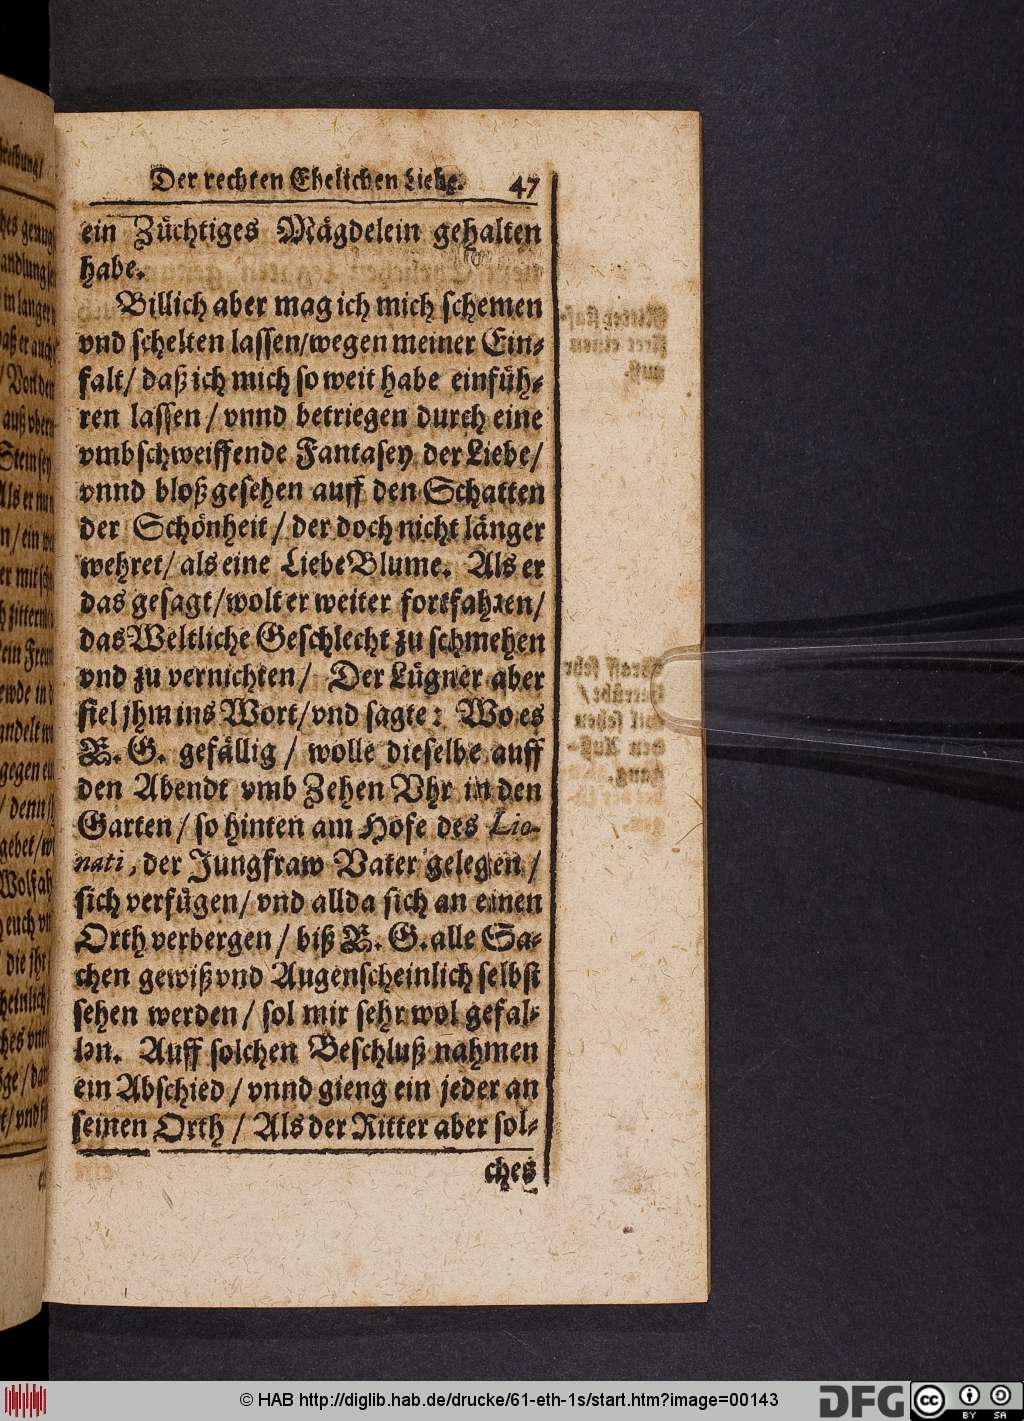 Der rechten Ehelichen Liebe. 47
ein Züchtiges Mägdelein gehalten
habe.
Billich aber mag ich mich schemen
vnd schelten lassen/wegen meiner Ein-
falt/ daß ich mich so weit habe einfüh-
ren lassen / vnnd betriegen durch eine
vmbschweiffende Fantasey der Liebe/
vnnd bloß gesehen auff den Schatten
der Schönheit / der doch nicht länger
wehret/ als eine Liebe Blume. Als er
das gesagt/wolt er weiter fortfahren/
das Weltliche Geschlecht zu schmehen
vnd zu vernichten/ Der Lügner aber
fiel jhm ins Wort/vnd sagte: Wo es
E. G. gefällig / wolle dieselbe auff
den Abendt vmb Zehen Vhr in den
Garten / so hinten am Hofe des Lio-
nati, der Jungfraw Vater gelegen /
sich verfügen/ vnd allda sich an einen
Orth verbergen / biß E. G. alle Sa-
chen gewiß vnd Augenscheinlich selbst
sehen werden / sol mir sehr wol gefal-
len. Auff solchen Beschluß nahmen
ein Abschied / vnnd gieng ein jeder an
seinen Orth / Als der Ritter aber sol-
ches
© HAB http://diglib.hab.de/drucke/61-eth-1s/start.htm?image=00143
DFG
cc
BY SA